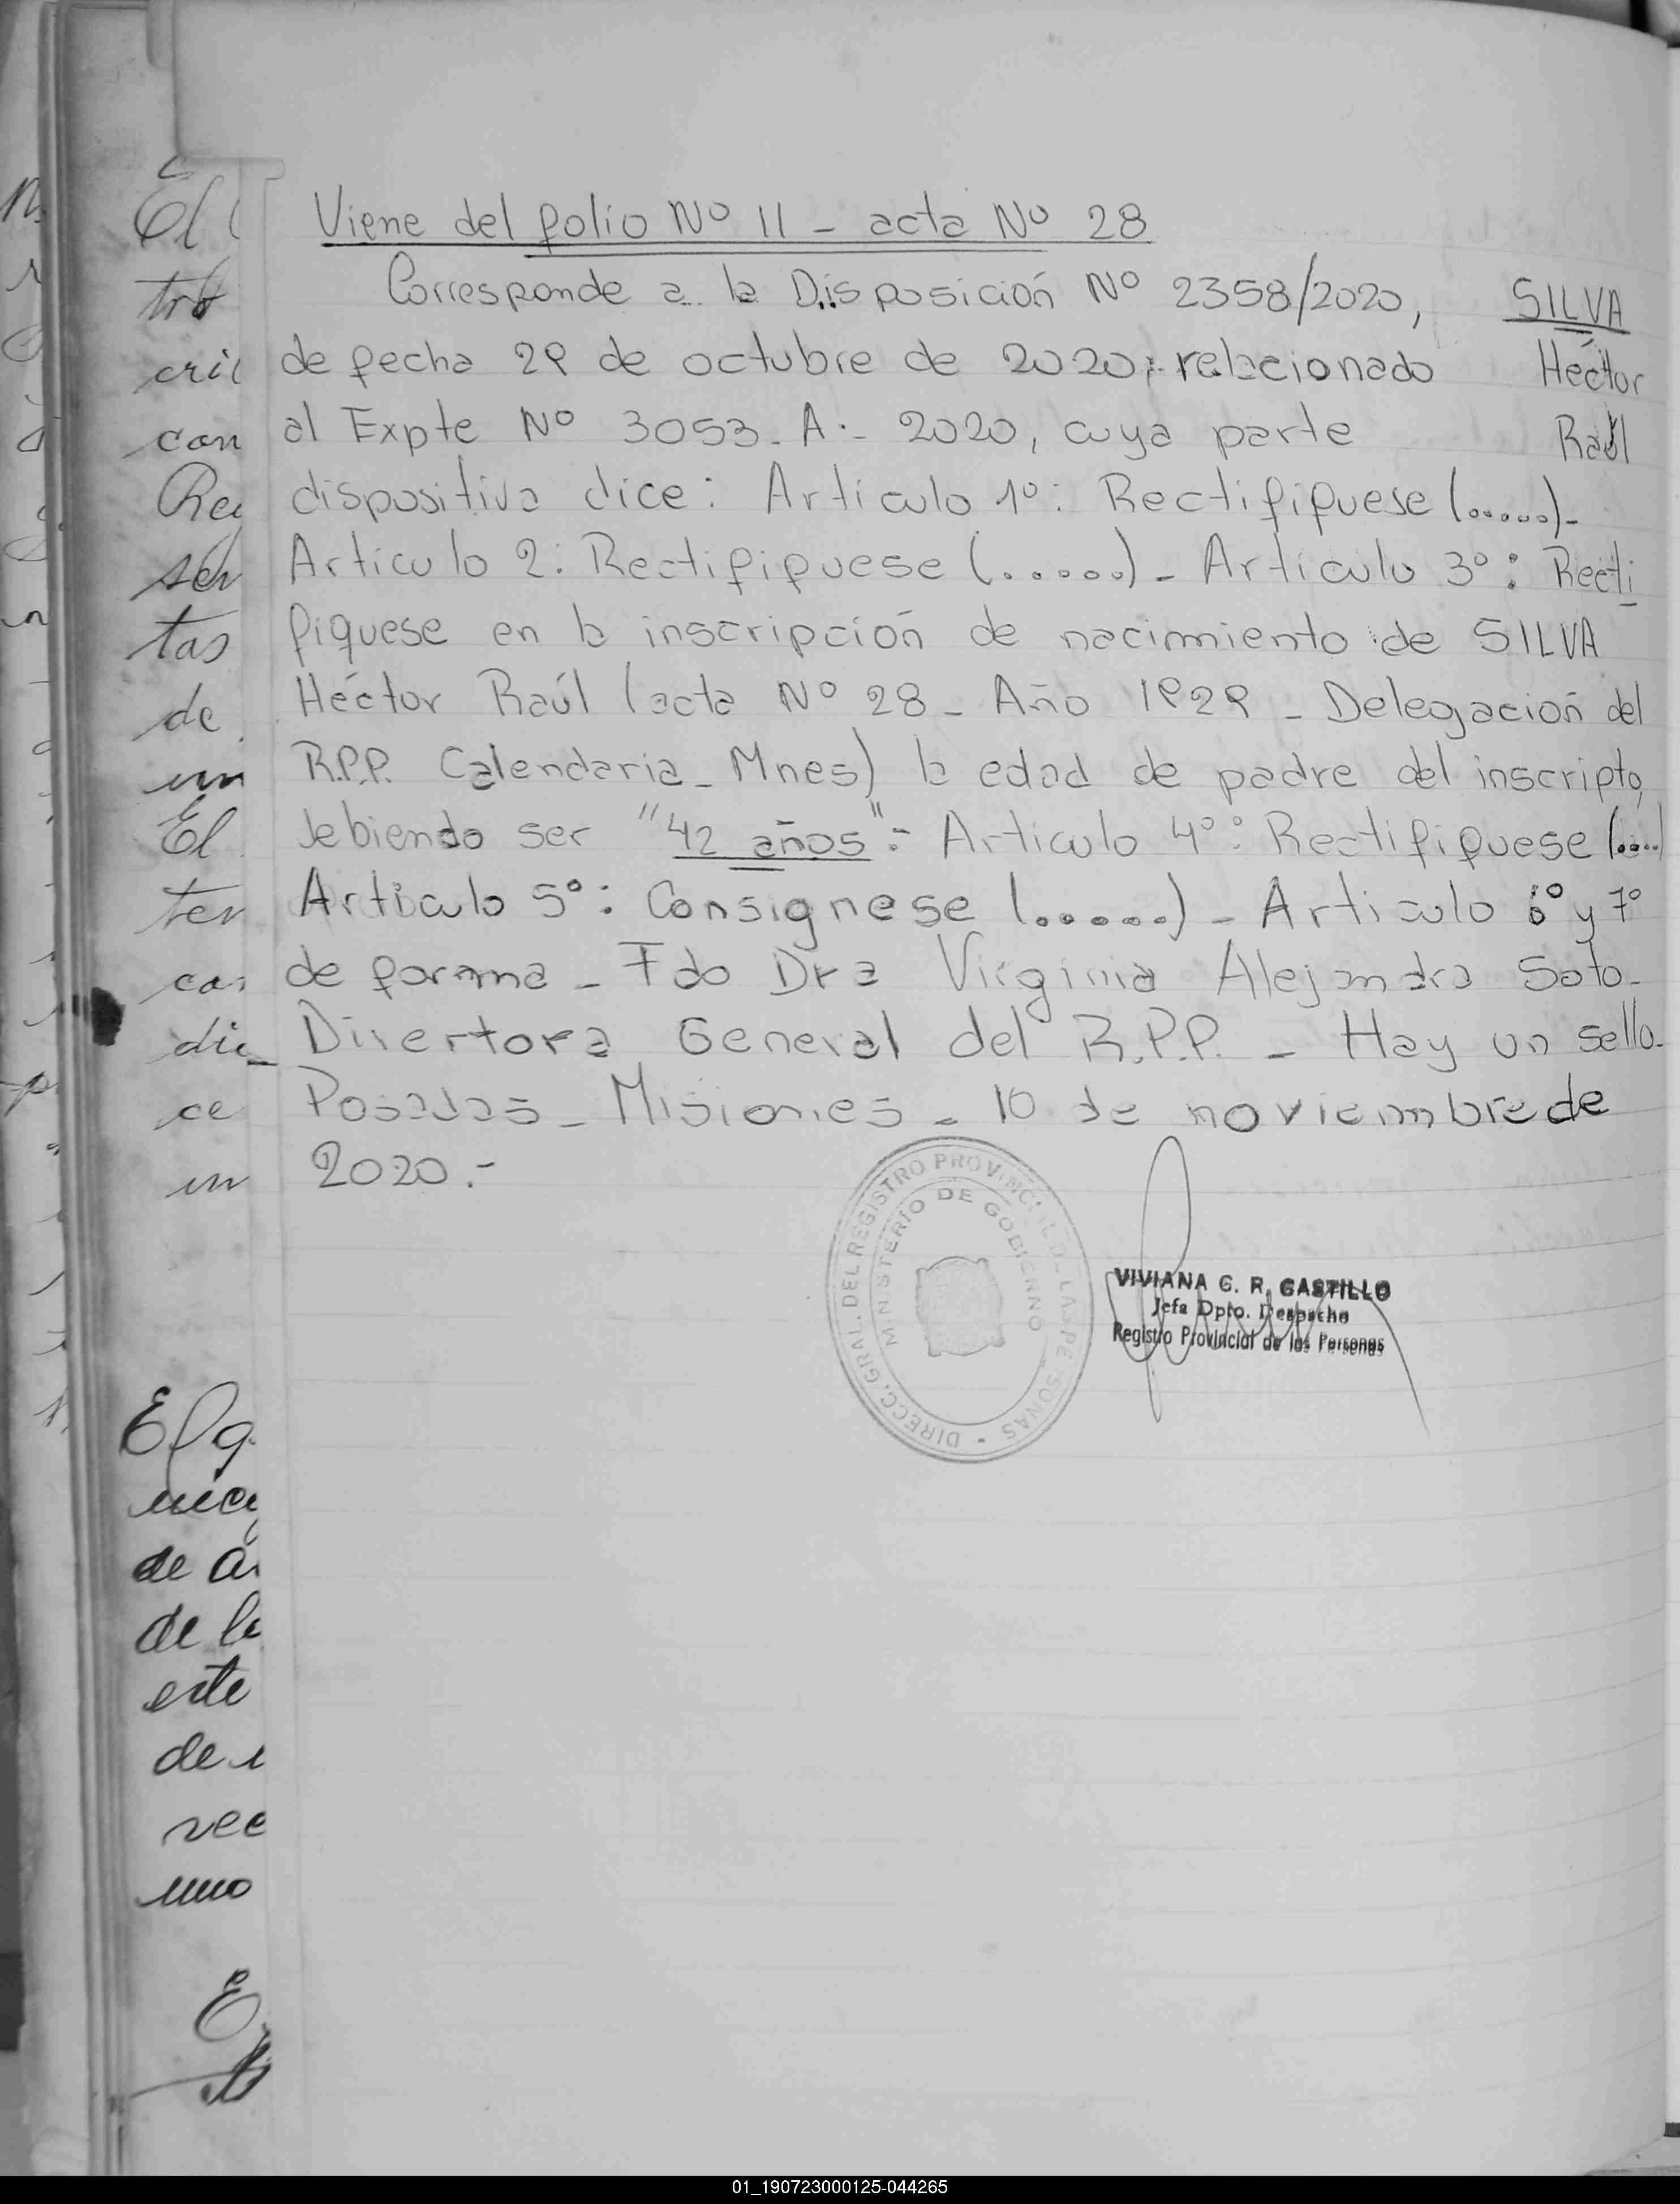 Viene del folio Nº 11 - acta Nº 28
Corresponde a la Disposición Nº 2358/2020,
de fecha 29 de octubre de 2020; relacionado
al Expte Nº 3053-A.- 2020, cuya parte
dispositiva dice: Artículo 1º: Rectifiquese (......)-
Artículo 2: Rectifiquese (......)- Artículo 3º: Recti
fiquese en la inscripción de nacimiento de SILVA
Héctor Raúl (acta Nº 28 - Año 1929 - Delegación del
R.P.P. Calendaria - Mnes) la edad de padre del inscripto,
debiendo ser "42 años".- Artículo 4º: Rectifiquese (....)
Artículo 5º: Consignese (......)- Artículo 6º y 7º
de forma - Fdo Dra Virginia Alejandra Soto-
Directora General del R.P.P. - Hay un sello-
Posadas - Misiones - 10 de noviembre de
2020.-
SILVA
Héctor
Raúl
DIRECC. GRAL. DEL REGISTRO PROVINCIAL DE LAS PERSONAS
MINISTERIO DE GOBIERNO
VIVIANA G. R. CASTILLO
Jefa Dpto. Despacho
Registro Provincial de las Personas
El
tro
cri
con
Reg
ser
tas
de
un
El
ter
cas
die
ce
un
El q
de a
de la
este
de
uno
01_190723000125-044265